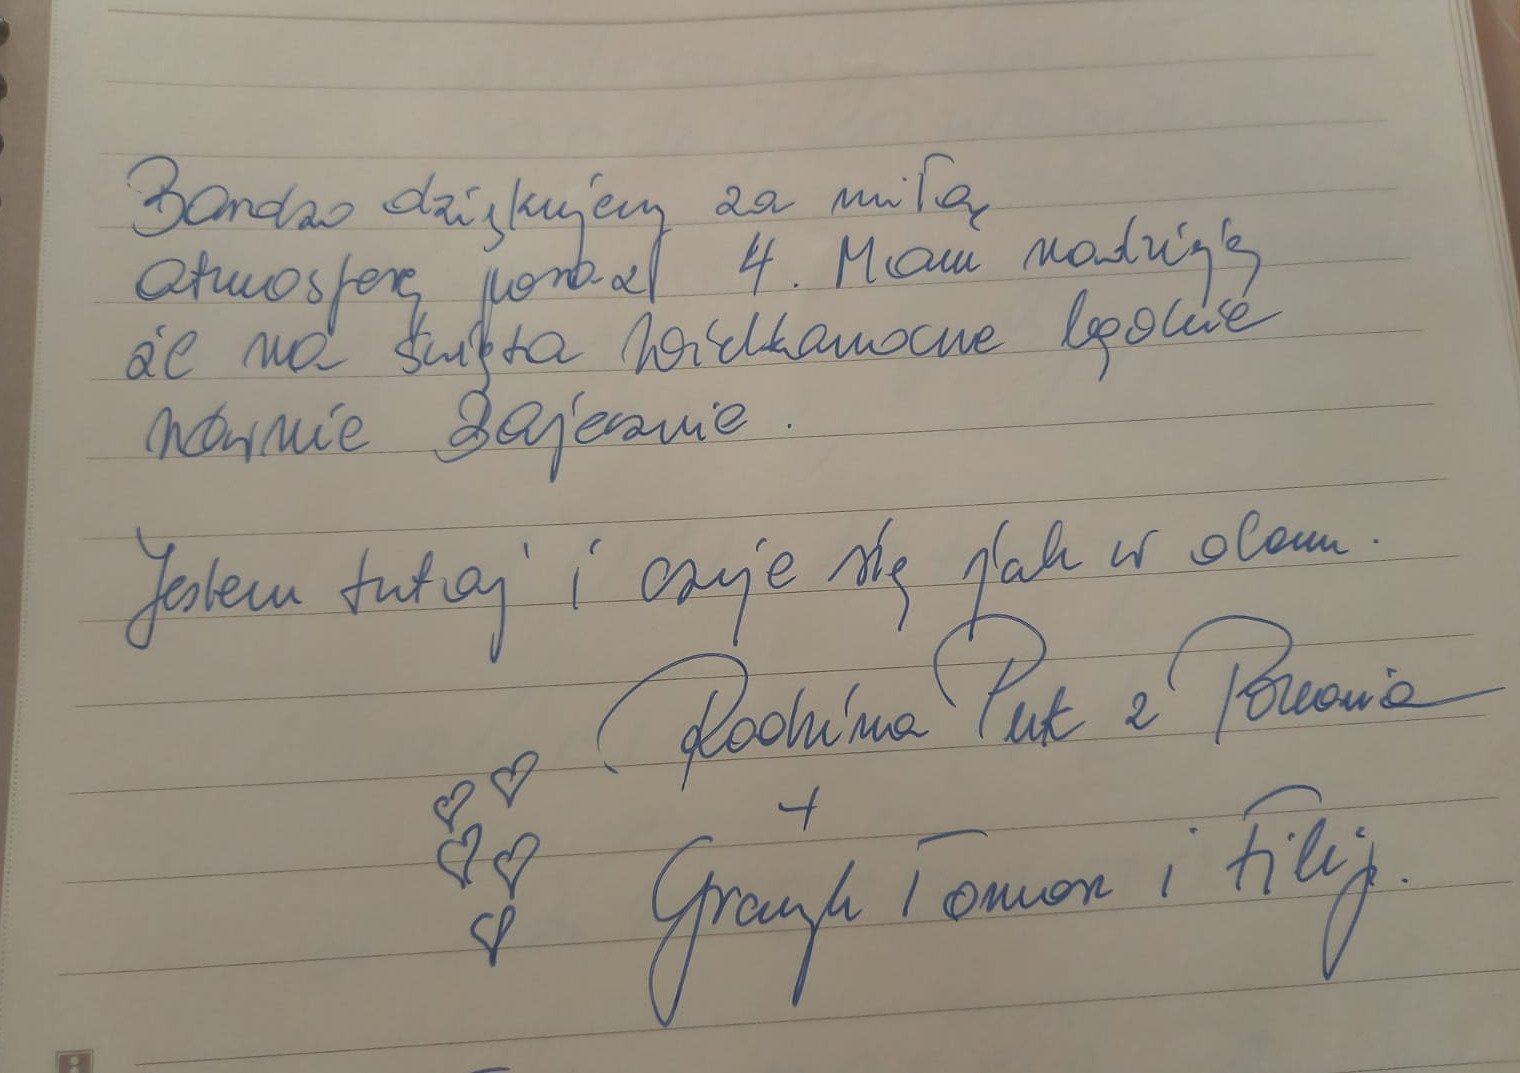 Bardzo dziękujemy za miłą
atmosferę poraz 4. Mam nadzieję
że na Święta Wielkanocne będzie
równie Zajecznie.
Jestem tutaj i czuje się jak w domu.
Rodzina Puk z Poznania
+
Tomasz i Filip.